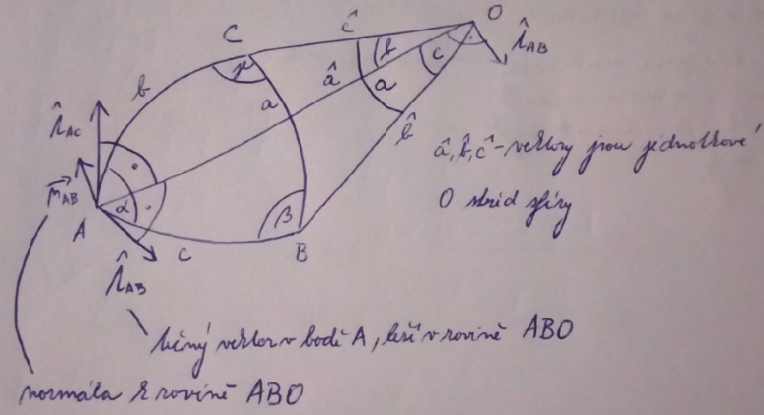 O
C
ĉ
t̂_AB
γ
b
c
b
â
a
a
b̂
t̂_AC
â, b̂, ĉ - vektory jsou jednotkové
n⃗_AB
O střed sféry
α
β
A
c
B
t̂_AB
tečný vektor v bodě A, leží v rovině ABO
normála k rovině ABO